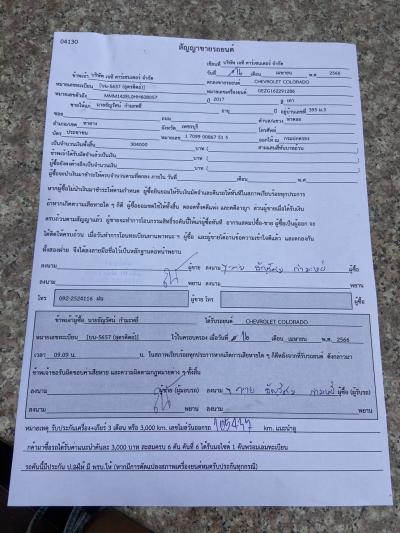 04130
สัญญาขายรถยนต์
เขียนที่ บริษัท เจซี คาร์เซนเตอร์ จำกัด
วันที่ 16 เดือน เมษายน พ.ศ. 2566
ข้าพเจ้า บริษัท เจซี คาร์เซนเตอร์ จำกัด ตกลงขายรถยนต์ CHEVROLET COLORADO
หมายเลขทะเบียน [รบ-5637 (อุตรดิตถ์)] หมายเลขเครื่องยนต์ GEZG162291286
หมายเลขตัวถัง ปี 2017 สี เทา
ขายให้แก่ นายธัญวิศม์ อายุ ปี อยู่บ้านเลขที่ 395 ม.3
ซอย ถนน ตำบล/แขวง ท่าคอย
อำเภอ/เขต ท่ายาง จังหวัด เพชรบุรี โทรศัพท์
บัตร ประชาชน 1 7099 00867 51 5 ออกให้ ณ กรมปกครอง
เป็นจำนวนเงินทั้งสิ้น 304000 บาท (
ข้าพเจ้าได้รับมัดจำแล้วเป็นเงิน บาท (
ผู้ซื้อยังคงค้างอีกเป็นจำนวนเงิน บาท (
ผู้ซื้อจะนำเงินมาชำระให้ครบจำนวนตามที่ตกลง ภายใน วันที่ เดือน พ.ศ.
หากผู้ซื้อไม่นำเงินมาชำระให้ตามกำหนด ผู้ซื้อยินยอมให้ริบเงินมัดจำและคืนรถให้ทันทีในสภาพเรียบร้อยทุกประการ
หากเกิดความเสียหายใด ๆ ก็ดี ผู้ซื้อยอมชดใช้ให้ทั้งสิ้น ตลอดทั้งคดีแพ่ง และคดีอาญา ส่วนผู้ขายเมื่อได้รับเงิน
ครบถ้วนตามสัญญาแล้ว ผู้ขายจะทำการโอนกรรมสิทธิ์รถคันนี้ให้แก่ผู้ซื้อทันที อากรแสตมป์ซื้อ-ขาย ผู้ซื้อเป็นผู้ออก
ทั้งสองฝ่าย จึงได้ลงลายมือชื่อไว้เป็นหลักฐานต่อหน้าพยาน
ลงนาม ผู้ขาย ลงนาม ผู้ซื้อ
ลงนาม พยาน ลงนาม พยาน
โทร 092-2524116 ฝน ผู้ขาย โทร ผู้ซื้อ
ข้าพเจ้าผู้ซื้อ นายธัญวิศม์ ได้รับรถยนต์ CHEVROLET COLORADO
หมายเลขทะเบียน [รบ-5637 (อุตรดิตถ์)] ไว้ในครอบครอง เมื่อวันที่ 16 เดือน เมษายน พ.ศ. 2566
เวลา 09.09 น. น. ในสภาพเรียบร้อยทุกประการหากเกิดการเสียหายใด ๆ ก็ดีหลังจากที่รับรถยนต์ ดังกล่าวมา
ข้าพเจ้าขอรับผิดชอบค่าเสียหาย และความผิดตามกฎหมายต่าง ๆ ทั้งสิ้น
ลงนาม ผู้ขาย (ผู้มอบรถ) ลงนาม ผู้ซื้อ (ผู้รับรถ)
ลงนาม พยาน ลงนาม พยาน
หมายเหตุ รับประกันเครื่อง+เกียร์ 3 เดือน หรือ 3,000 km. เลขไมล์วันออกรถ 105447 km. แนะนำลูก
ค้ามาซื้อรถได้รับค่าแนะนำคันละ 3,000 บาท สะสมครบ 6 คัน คันที่ 6 ได้รับมอไซค์ 1 คันพร้อมเล่มทะเบียน